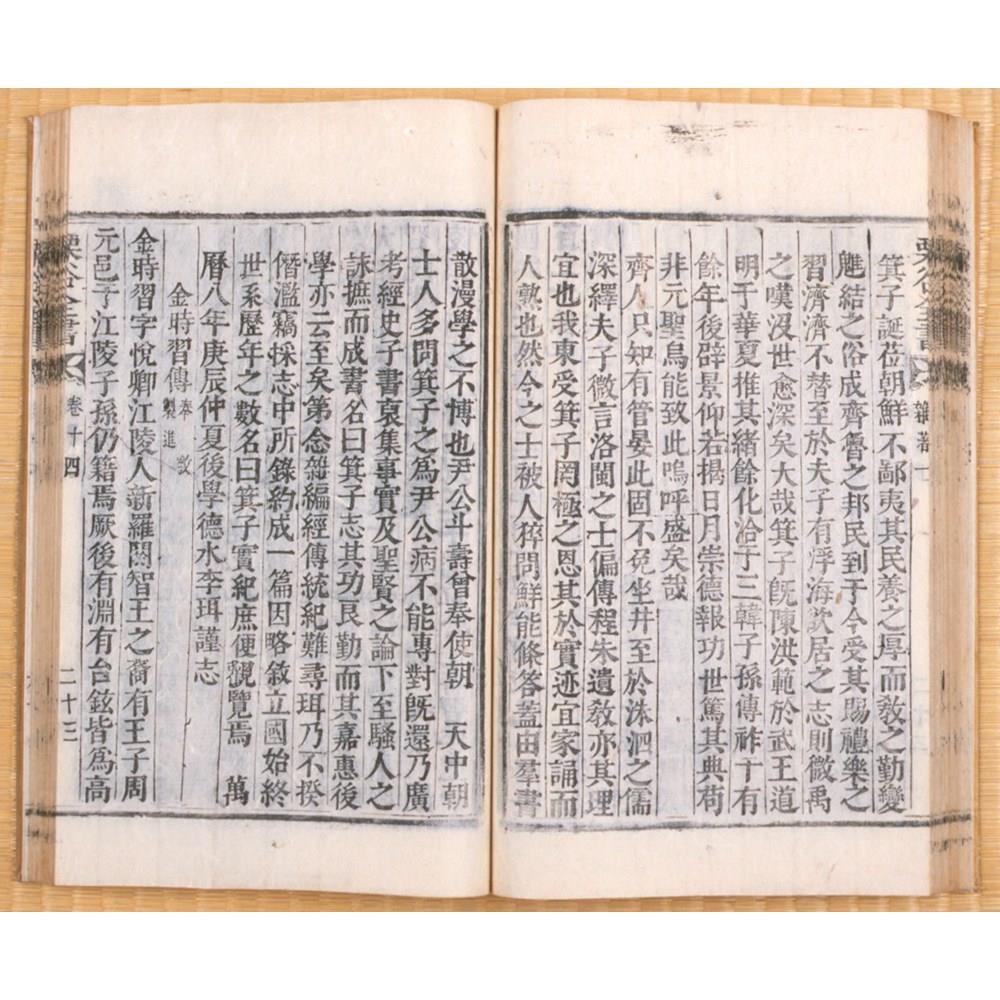 箕子誕莅朝鮮不鄙夷其民養之厚而敎之勤變
魋結之俗成齊魯之邦民到于今受其賜禮樂之
習濟濟不替至於夫子有浮海欲居之志則微禹
之嘆沒世愈深矣大哉箕子旣陳洪範於武王道
明于華夏推其緖餘化洽于三韓子孫傳祚千有
餘年後辟景仰若揭日月崇德報功世篤其典苟
非元聖烏能致此嗚呼盛矣哉
齊人只知有管晏此固不免坐井至於洙泗之儒
深繹夫子微言洛閩之士偏傳程朱遺敎亦其理
宜也我東受箕子罔極之恩其於實迹宜家誦而
人熟也然今之士被人猝問鮮能條答蓋由羣書
散漫學之不博也尹公斗壽曾奉使朝 天中朝
士人多問箕子之爲尹公病不能專對旣還乃廣
考經史子書裒集事實及聖賢之論下至騷人之
詠摭而成書名曰箕子志其功良勤而其嘉惠後
學亦云至矣第念雜編經傳統紀難尋珥乃不揆
僭濫竊採志中所錄約成一篇因略敘立國始終
世系歷年之數名曰箕子實紀庶便觀覽焉 萬
曆八年庚辰仲夏後學德水李珥謹志
金時習傳 奉敎製進
金時習字悅卿江陵人新羅閼智王之裔有王子周
元邑于江陵子孫仍籍焉厥後有淵有台鉉皆爲高
栗谷全書
卷十四
二十三
栗谷全書
雜著一